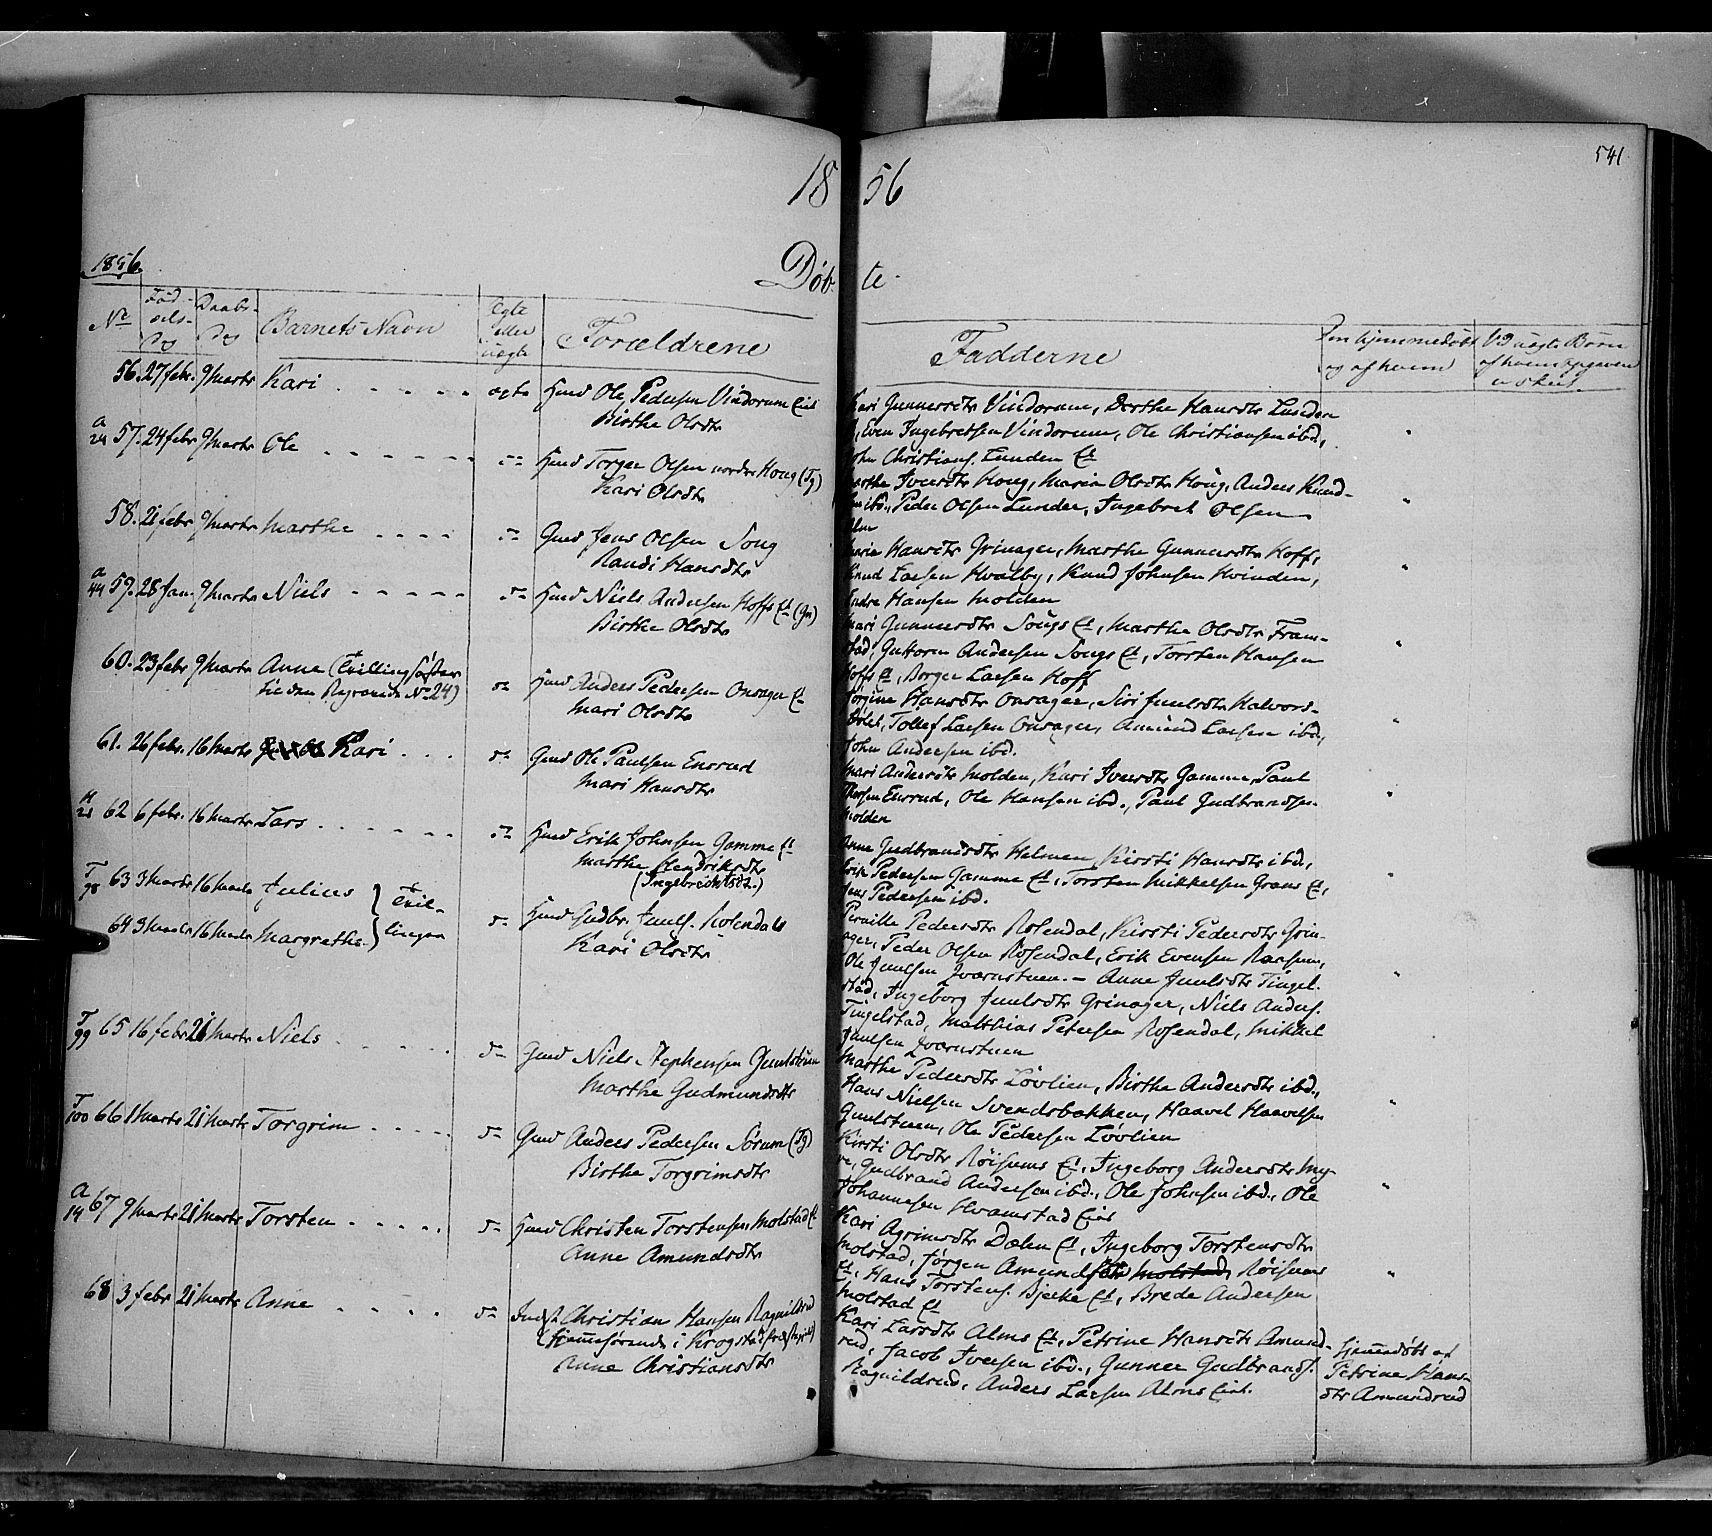 18 56
541
1856.
Døb- te.
No Fød- sels- Dag Daabs- Dag Barnets Navn Ægte eller uægte Forældrene
Fadderne Om hjemmedøbt og af hvem
56. 27 febr. 9 Marts Kari ægte Huusmd Ole Pedersen Vindorum Eier
Birthe Olsdtr
Kari Gunnersdtr Vindorum, Dorthe Hansdtr Lunden
Even Ingebretsen Vindorum, Ole Christiansen ibd.,
John Christians. Lunden Et
a 24 57. 24 febr 9 Marts Ole Torger Olsen nordre Houg (Tg)
Kari Olsdtr
Marthe Iversdtr Houg, Maria Olsdtr Houg, Anders Knud-
sen ibd., Peder Olsen Lunder, Ingebret Olsen
58. 21 febr 9 Marts Marthe Gmd Jens Olsen Song
Randi Hansdtr
Marie Hansdtr Grinager, Marthe Gunnersdtr Hoff,
Knud Larsen Hvalby, Knud Johnsen Hvinden,
Endre Hansen Molden
a 44 59. 28 Jan. 9 Marts Niels Niels Andersen Hoffs Et (Gr)
Birthe Olsdtr
Mari Gunnersdtr Songs Et, Marthe Olsdtr Fram-
stad, Guttorm Andersen Songs Et, Torsten Hansen
Hoffs Et, Borger Larsen Hoff
60. 23 febr 9 Marts Anne (Tvillingsøster
til den No 24) Anders Pedersen Onsager Et
Mari Olsdtr
Jørgine Hansdtr Onsager, Siri Juulsdtr Halvors-
Tollef Larsen Onsager, Amund Larsen ibd.,
John Andersen ibd.
61. 26 febr. 16 Marts Kari Gmd Ole Paulsen Ensrud
Mari Hansdtr
Mari Andersdtr Molden, Kari Iversdtr Gamme, Paul
Thorsen Ensrud, Ole Hansen ibd., Paul Gudbrandsen
Molden
H 21 62 6 febr. 16 Marts Lars Erik Johnsen Gamme Et
Marthe Hendriksdtr
(Ingebrechtsdt.)
Anne Gudbrandsdtr Helmen, Kirsti Hansdtr ibd.,
Erik Pedersen Gamme Et, Torsten Mikkelsen Grans Et,
Jens Pedersen ibd.
T 98 63 3 Marts 16 Marts Julius } Tvil-
64 3 Marts 16 Marts Margrethe } linger
Gudbr. Juuls. Rosendals
Kari Olsdtr
Pernille Pedersdtr Rosendal, Kirsti Pedersdtr Grin-
ager, Peder Olsen Rosendal, Erik Evensen
Ole Juulsen Qværnstuen. - Anne Juulsdtr Tingel-
stad, Ingeborg Juulsdtr Grinager, Niels Anders.
Tingelstad, Matthias Petersen Rosendal, Mikkel
Paulsen Qværnstuen
T 99 65 16 febr 21 Marts Niels Gmd Niels Stephensen
Marthe Gudmundsdtr
Marthe Pedersdtr Løvlien, Birthe Andersdtr ibd.,
Hans Nielsen Svendsbakken, Haavel Haavelsen
Ole Pedersen Løvlien
T 100 66 1 Marts 21 Marts Torgrim Gmd Anders Pedersen Sørum (Tg)
Birthe Torgrimsdtr
Kirsti Olsdtr Røisums Et, Ingeborg Andersdtr My-
re, Gudbrand Andersen ibd., Ole Johnsen ibd., Ole
Johannesen Hvamstad Eier
a 14 67 9 Marts 21 Marts Torsten Christen Torstensen Molstad Et
Anne Amundsdtr
Kari Agrimsdtr Dælen Et, Ingeborg Torstensdtr
Molstad, Jørgen Amundsen Molstad, Røisums
Et, Hans Torstens. Bjerke Et, Brede Andersen
Molstad Et
68 3 febr 21 Marts Anne Inds. Christian Hansen Ragnildrud
(hjemmehørende i Krogstad Præstegield)
Anne Christiansdtr
Kari Larsdtr Alms Et, Petrine Hansdtr Amund-
rud, Jacob Iversen ibd., Gunner Gudbrands.
Ragnildrud, Anders Larsen Alms Eier.
hjemmedøbt af
Petrine Hans-
dtr Amundrud